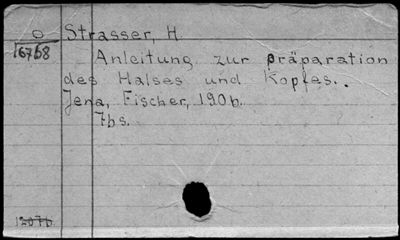 O Strasser, H.
16768
Anleitung zur präparation
des Halses und Kopfes..
Jena, Fischer, 1906.
7bs.
12076